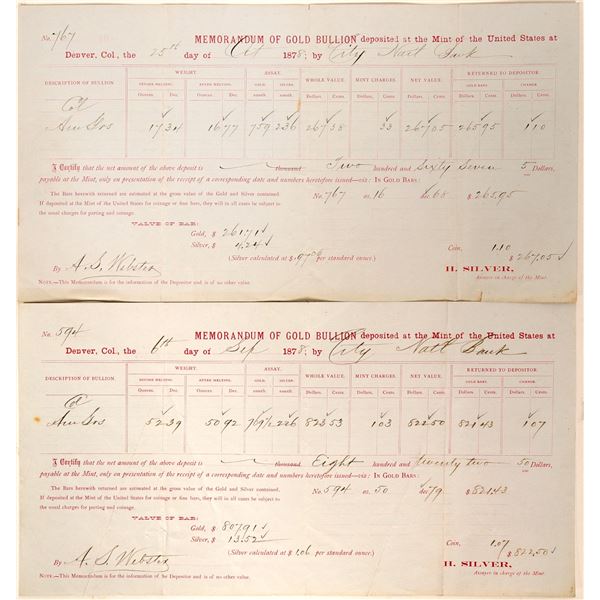 No. 767 MEMORANDUM OF GOLD BULLION deposited at the Mint of the United States at
Denver, Col., the 25th day of Oct 1878; by City Natl Bank
DESCRIPTION OF BULLION. WEIGHT. ASSAY. WHOLE VALUE. MINT CHARGES. NET VALUE. RETURNED TO DEPOSITOR
BEFORE MELTING. AFTER MELTING. GOLD. SILVER. GOLD BARS. CHANGE.
Ounces. Dec. Ounces. Dec. Dollars. Cents. Dollars. Cents. Dollars. Cents. Dollars. Cents. Dollars. Cents.
17 34 16 77 759 236 267 38 33 267 05 265 95 1 10
I Certify that the net amount of the above deposit is thousand Two hundred and Sixty Seven 5 Dollars,
payable at the Mint, only on presentation of the receipt of a corresponding date and numbers heretofore issued—viz: IN GOLD BARS:
The Bars herewith returned are estimated at the gross value of the Gold and Silver contained. No. 767 oz. 16 dec 68 $ 265.95
If deposited at the Mint of the United States for coinage or fine bars, they will in all cases be subject to
the usual charges for parting and coinage.
VALUE OF BAR:
Gold, $ 261.71
Silver, $ 4.24
Coin, 1.10
(Silver calculated at $ .97 per standard ounce.) $ 267.05
By A. S. Webster H. SILVER,
Assayer in charge of the Mint.
NOTE.—This Memorandum is for the information of the Depositor and is of no other value.
No. 594 MEMORANDUM OF GOLD BULLION deposited at the Mint of the United States at
Denver, Col., the 6th day of Sep 1878; by City Natl Bank
DESCRIPTION OF BULLION. WEIGHT. ASSAY. WHOLE VALUE. MINT CHARGES. NET VALUE. RETURNED TO DEPOSITOR
BEFORE MELTING. AFTER MELTING. GOLD. SILVER. GOLD BARS. CHANGE.
Ounces. Dec. Ounces. Dec. Dollars. Cents. Dollars. Cents. Dollars. Cents. Dollars. Cents. Dollars. Cents.
52 39 50 92 226 823 53 1 03 822 50 821 43 1 07
I Certify that the net amount of the above deposit is thousand Eight hundred and twenty two 50 Dollars,
payable at the Mint, only on presentation of the receipt of a corresponding date and numbers heretofore issued—viz: IN GOLD BARS:
The Bars herewith returned are estimated at the gross value of the Gold and Silver contained. No. 594 oz. 50 dec 79 $ 821.43
If deposited at the Mint of the United States for coinage or fine bars, they will in all cases be subject to
the usual charges for parting and coinage.
VALUE OF BAR:
Gold, $ 807.91
Silver, $ 13.52
Coin, 1.07
(Silver calculated at $ 1.06 per standard ounce.) $ 822.50
By A. S. Webster H. SILVER,
Assayer in charge of the Mint.
NOTE.—This Memorandum is for the information of the Depositor and is of no other value.